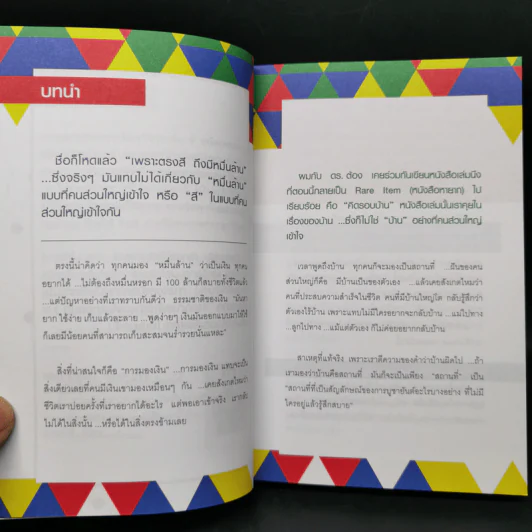 บทนำ
ชื่อก็โหดแล้ว "เพราะตรงสี ถึงมีหมื่นล้าน"
...ซึ่งจริงๆ มันแทบไม่ได้เกี่ยวกับ "หมื่นล้าน"
แบบที่คนส่วนใหญ่เข้าใจ หรือ "สี" ในแบบที่คน
ส่วนใหญ่เข้าใจกัน
ตรงนี้น่าคิดว่า ทุกคนมอง "หมื่นล้าน" ว่าเป็นเงิน ทุกคน
อยากได้ ...ไม่ต้องถึงหมื่นหรอก มี 100 ล้านก็สบายทั้งชีวิตแล้ว
...แต่ปัญหาอย่างที่เราทราบกันดีว่า ธรรมชาติของเงิน "มันหา
ยาก ใช้ง่าย เก็บแล้วละลาย ...พูดง่ายๆ เงินมันออกแบบมาให้ใช้
ก็เลยมีน้อยคนที่สามารถเก็บสะสมจนร่ำรวยนั่นแหละ"
สิ่งที่น่าสนใจก็คือ "การมองเงิน" ...การมองเงิน แทบจะเป็น
สิ่งเดียวเลยที่คนมีเงินเขามองเหมือนๆ กัน ...เคยสังเกตไหมว่า
ชีวิตเราบ่อยครั้งที่เราอยากได้อะไร แต่พอเอาเข้าจริง เรากลับ
ไม่ได้ในสิ่งนั้น ...หรือได้ในสิ่งตรงข้ามเลย
ผมกับ ดร. ต้อง เคยร่วมกันเขียนหนังสือเล่มนึง
ที่ตอนนี้กลายเป็น Rare Item (หนังสือหายาก) ไป
เรียบร้อย คือ "คิดรอบบ้าน" หนังสือเล่มนั้นเราคุยใน
เรื่องของบ้าน ...ซึ่งก็ไม่ใช่ "บ้าน" อย่างที่คนส่วนใหญ่
เข้าใจ
เวลาพูดถึงบ้าน ทุกคนก็จะมองเป็นสถานที่ ...ฝันของคน
ส่วนใหญ่ก็คือ มีบ้านเป็นของตัวเอง ...แล้วเคยสังเกตไหมว่า
คนที่ประสบความสำเร็จในชีวิต คนที่มีบ้านใหญ่โต กลับรู้สึกว่า
ตัวเองไร้บ้าน เพราะแทบไม่มีใครอยากจะกลับบ้าน ...แม่ไปทาง
...ลูกไปทาง ...แม้แต่ตัวเอง ก็ไม่ค่อยอยากกลับบ้าน
สาเหตุที่แท้จริง เพราะเราตีความของคำว่าบ้านผิดไป ...ถ้า
เรามองว่าบ้านคือสถานที่ มันก็จะเป็นเพียง "สถานที่" เป็น
"สถานที่ที่เป็นสัญลักษณ์ของการบูชายัญต์อะไรบางอย่าง ที่ไม่มี
ใครอยู่แล้วรู้สึกสบาย"